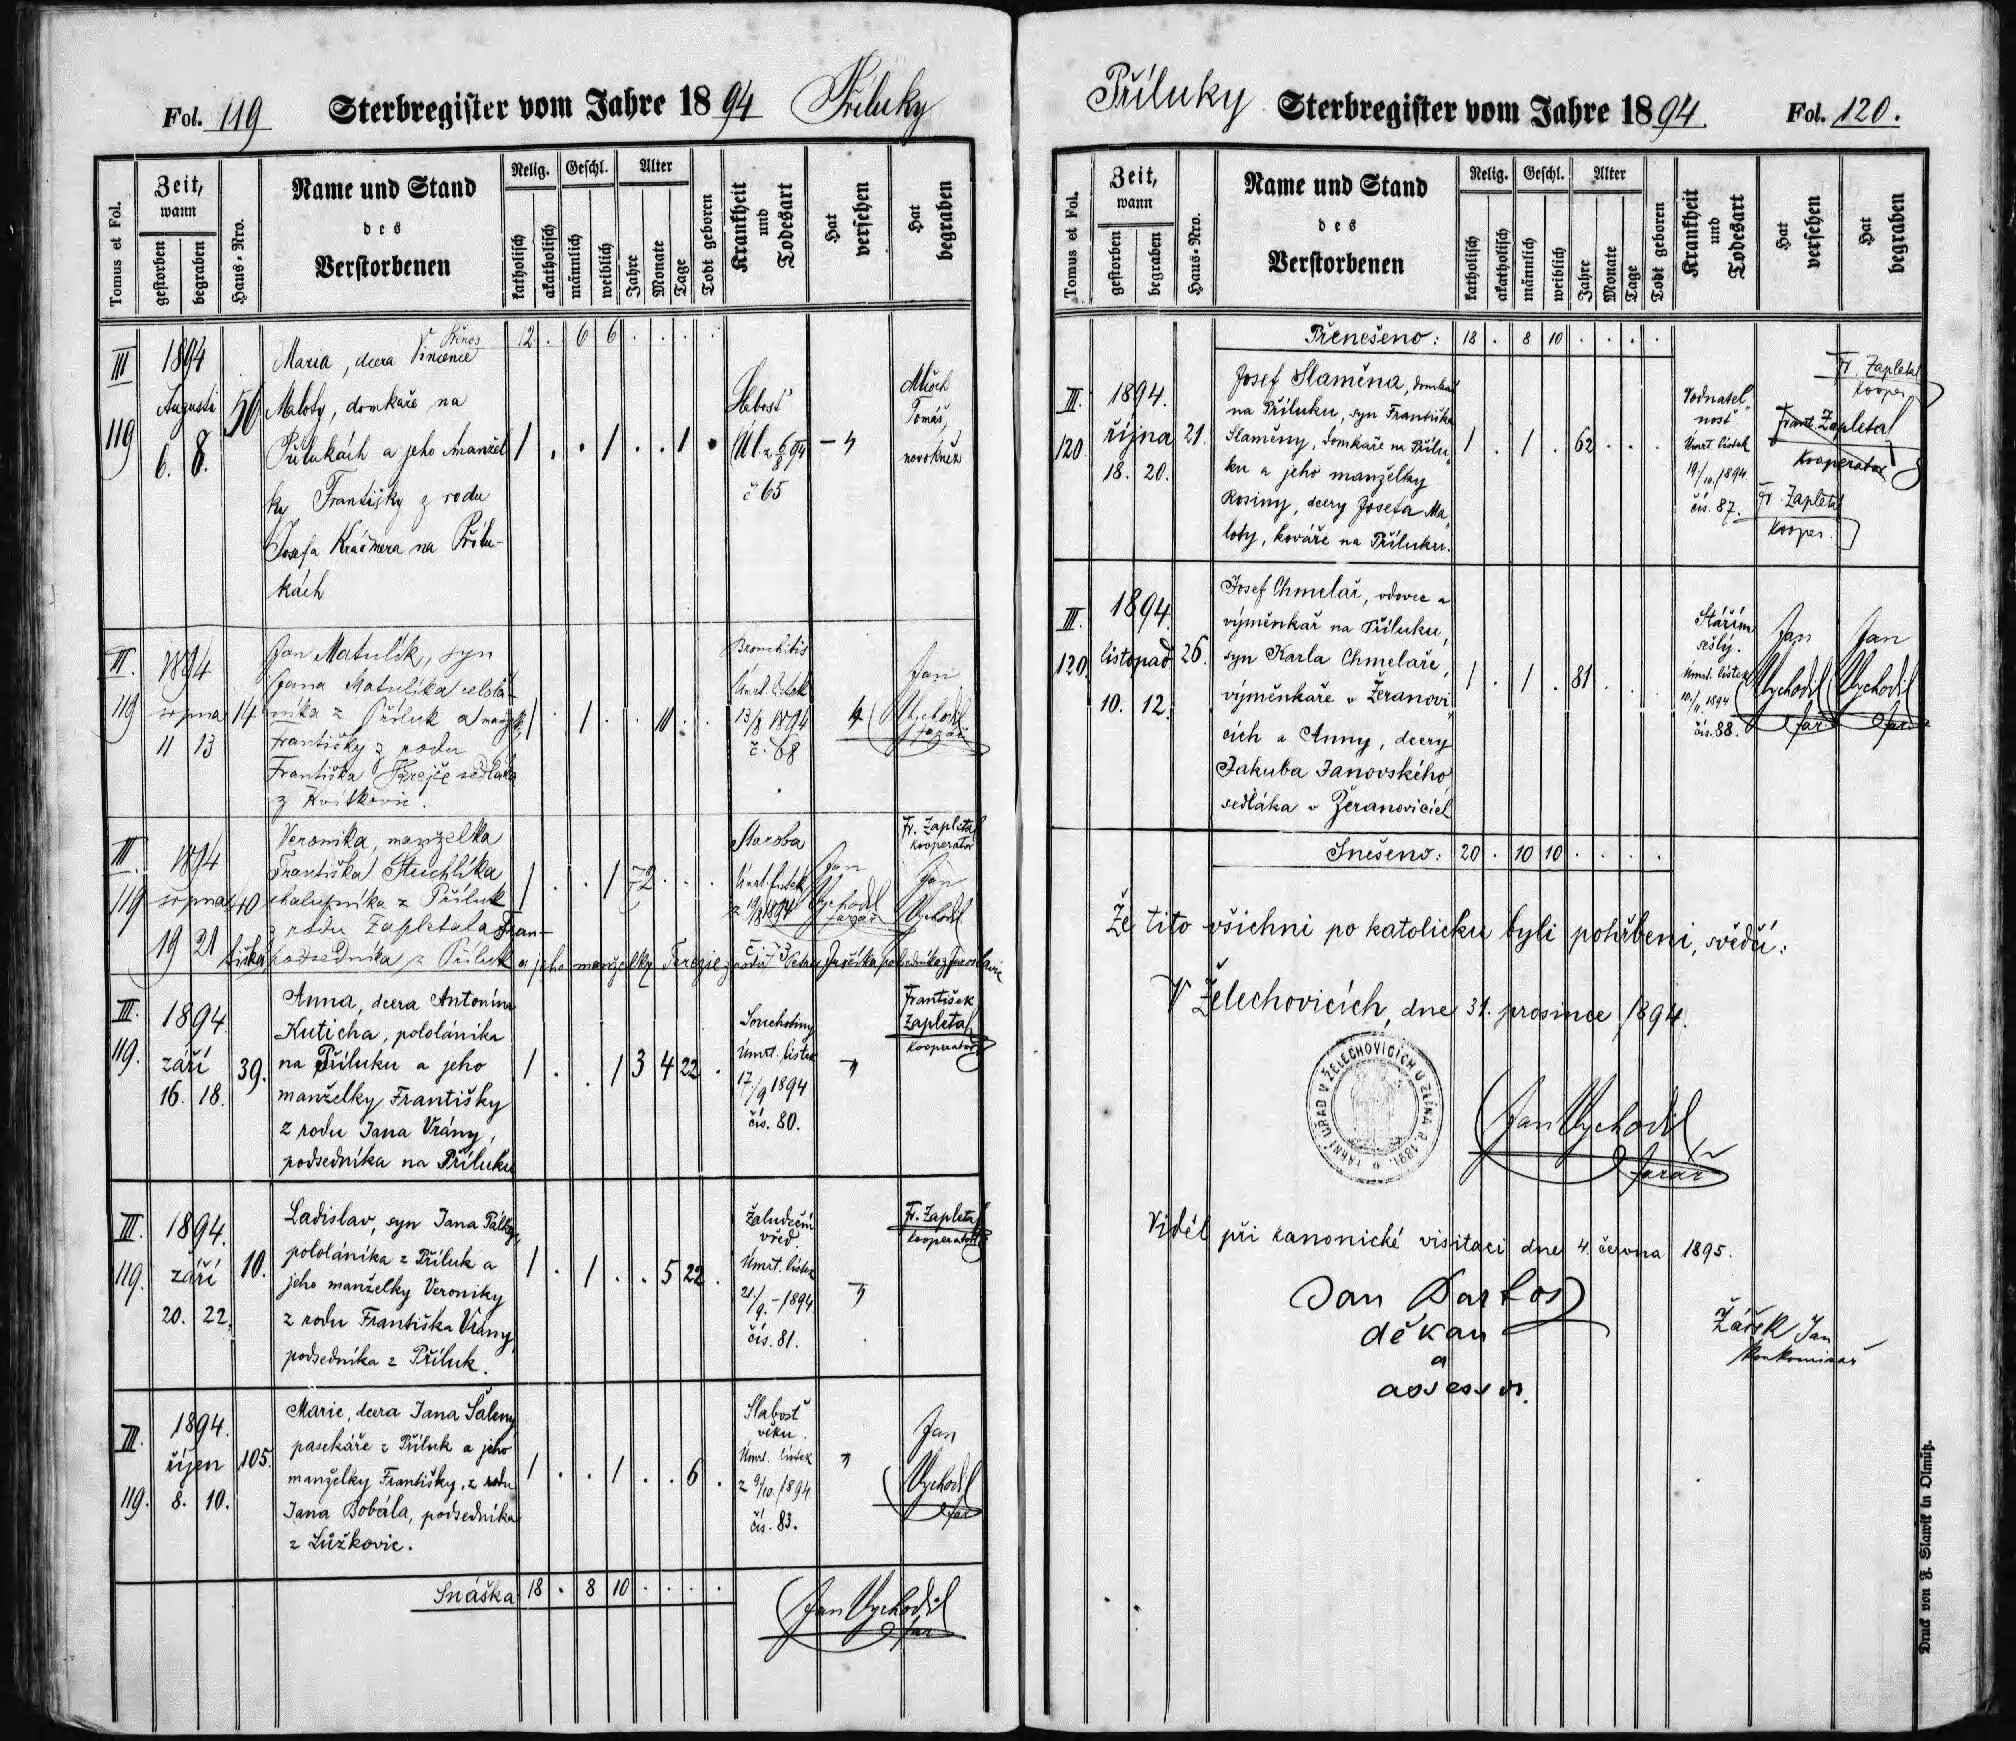 Fol. 119 Sterbregister vom Jahre 1894 Příluky
Tomus et Fol.
Zeit, wann
gestorben
begraben
Haus-Nro.
Name und Stand
des
Verstorbenen
Relig.
katholisch
akatholisch
Geschl.
männlich
weiblich
Alter
Jahre
Monate
Tage
Todt geboren
Krankheit
und
Todesart
Hat
versehen
Hat
begraben
12 . 6 6 . . . .
III
119
1894
Augusti
6. 8.
56
Maria, dcera Vincence
Maloty, domkaře na
Přílukách a jeho manžel
ky Františky z rodu
Josefa Kračmera na Přílu-
kách
1 . . 1 . . 1 .
Slabost
č 65
Mlčoch
Tomáš,
novokněz
III.
119
1894
srpna
11 13
14
Jan Matulík, syn
Jana Matulíka celolá-
níka z Příluk a manželky
Františky z rodu
Františka Krejče sedláka
z Kvítkovic.
1 . 1 . . 11 . .
Bronchitis
Úmrt. lístek
13/8 1894
č. 68
Jan
Vychodil
farář
III.
119
1894
srpna
19 21
40
Veronika, manželka
Františka Stuchlíka
chalupníka z Příluk
z rodu Zapletala Fran-
tiška podsedníka z Příluk a jeho manželky Terezie z rodu Petra
1 . . 1 72 . . .
Staroba
Úmrt. lístek
z 19/8 1894
Jan
Vychodil
farář
Fr. Zapletal
kooperator
Jan
Vychodil
III.
119.
1894
září
16. 18.
39.
Anna, dcera Antonína
Kuticha, pololáníka
na Příluku a jeho
manželky Františky
z rodu Jana Vrány,
podsedníka na Příluku
1 . . 1 3 4 22 .
Souchotiny
Úmrt. lístek
17/9 1894
čís. 80.
František
Zapletal
kooperator
III.
119.
1894.
září
20. 22.
10.
Ladislav, syn Jana Pálky,
pololáníka z Příluk a
jeho manželky Veroniky
z rodu Františka Vrány,
podsedníka z Příluk.
1 . 1 . . 5 22 .
Žaludeční
vřed
Úmrt. lístek
21/9. 1894
čís. 81.
Fr. Zapletal
kooperator
III.
119.
1894.
říjen
8. 10.
105.
Marie, dcera Jana Šaleny
pasekáře z Příluk a jeho
manželky Františky, z rodu
Jana Bobála, podsedníka
z Lůžkovic.
1 . . 1 . . 6 .
Slabost
věku.
Úmrt. lístek
z 9/10. 1894
čís. 83.
Jan
Vychodil
far
Snáška 18 . 8 10 . . . .
Jan Vychodil
far
Příluky Sterbregister vom Jahre 1894. Fol. 120.
Tomus et Fol.
Zeit, wann
gestorben
begraben
Haus-Nro.
Name und Stand
des
Verstorbenen
Relig.
katholisch
akatholisch
Geschl.
männlich
weiblich
Alter
Jahre
Monate
Tage
Todt geboren
Krankheit
und
Todesart
Hat
versehen
Hat
begraben
Přenešeno: 18 . 8 10 . . . .
III.
120
1894.
října
18. 20.
21.
Josef Slaměna, domkař
na Příluku, syn Františka
Slaměny, domkaře na Přílu-
ku a jeho manželky
Rosiny, dcery Josefa Ma-
loty, kováře na Příluku.
1 . 1 . 62 . . .
Vodnatel-
nost
Úmrt. lístek
19./10. 1894
čís. 87.
Frant. Zapletal
kooperator
Fr. Zapletal
kooper.
Fr. Zapletal
kooper.
III.
120
1894.
listopad
10. 12.
26.
Josef Chmelař, vdovec a
výměnkář na Příluku,
syn Karla Chmelaře,
výměnkáře v Žeranovi-
cích a Anny, dcery
Jakuba Janovského,
sedláka v Žeranovicích
1 . 1 . 81 . . .
Stářím
sešlý.
Úmrt. lístek
10./11. 1894
čís. 88.
Jan
Vychodil
far.
Jan
Vychodil
far
Snešeno: 20 . 10 10 . . . .
Že tito všichni po katolicku byli pohřbeni, svědčí:
V Želechovicích, dne 31. prosince 1894.
FARNÍ ÚŘAD V ŽELECHOVICÍCH U ZLÍNA R. 1891.
Jan Vychodil
farář
Viděl při kanonické visitaci dne 4. června 1895.
Jan Bartoš
děkan
a
assessor.
Žáček Jan
Druck von F. Slawik in Olmütz.